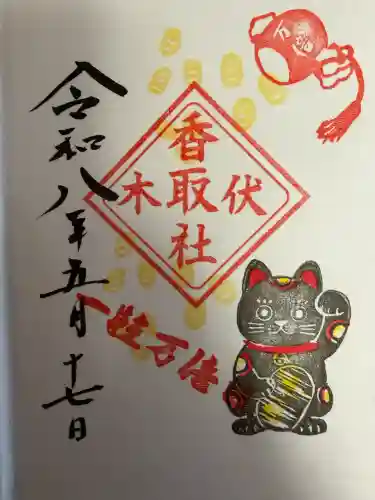 令和八年五月十七日
香取社
伏木
一粒万倍
万宝